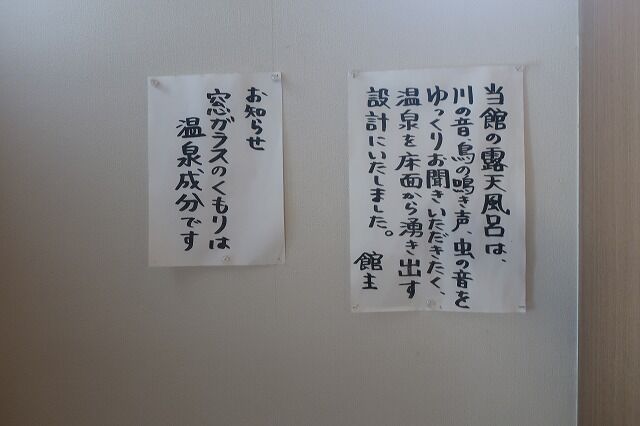 当館の露天風呂は、
川の音、鳥の鳴き声、虫の音を
ゆっくりお聞きいただきたく、
温泉を床面から湧き出す
設計にいたしました。
館主
お知らせ
窓ガラスのくもりは
温泉成分です